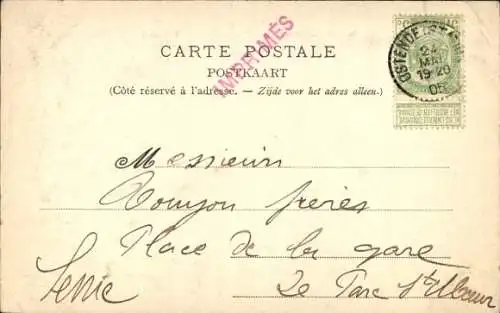 IMPRIMÉS
CARTE POSTALE
POSTKAART
(Côté réservé à l'adresse. — Zijde voor het adres alleen.)
OSTENDE
24
MAI
19-20
05
Messieurs
frères
Place de la gare
Le Parc St Maur